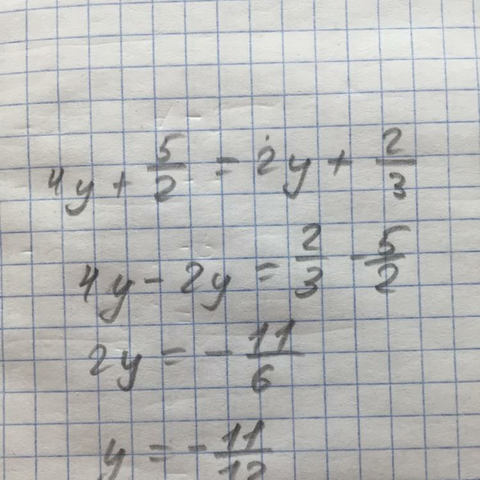 4y + 5/2 = 2y + 2/3
4y - 2y = 2/3 - 5/2
2y = - 11/6
y = - 11/12